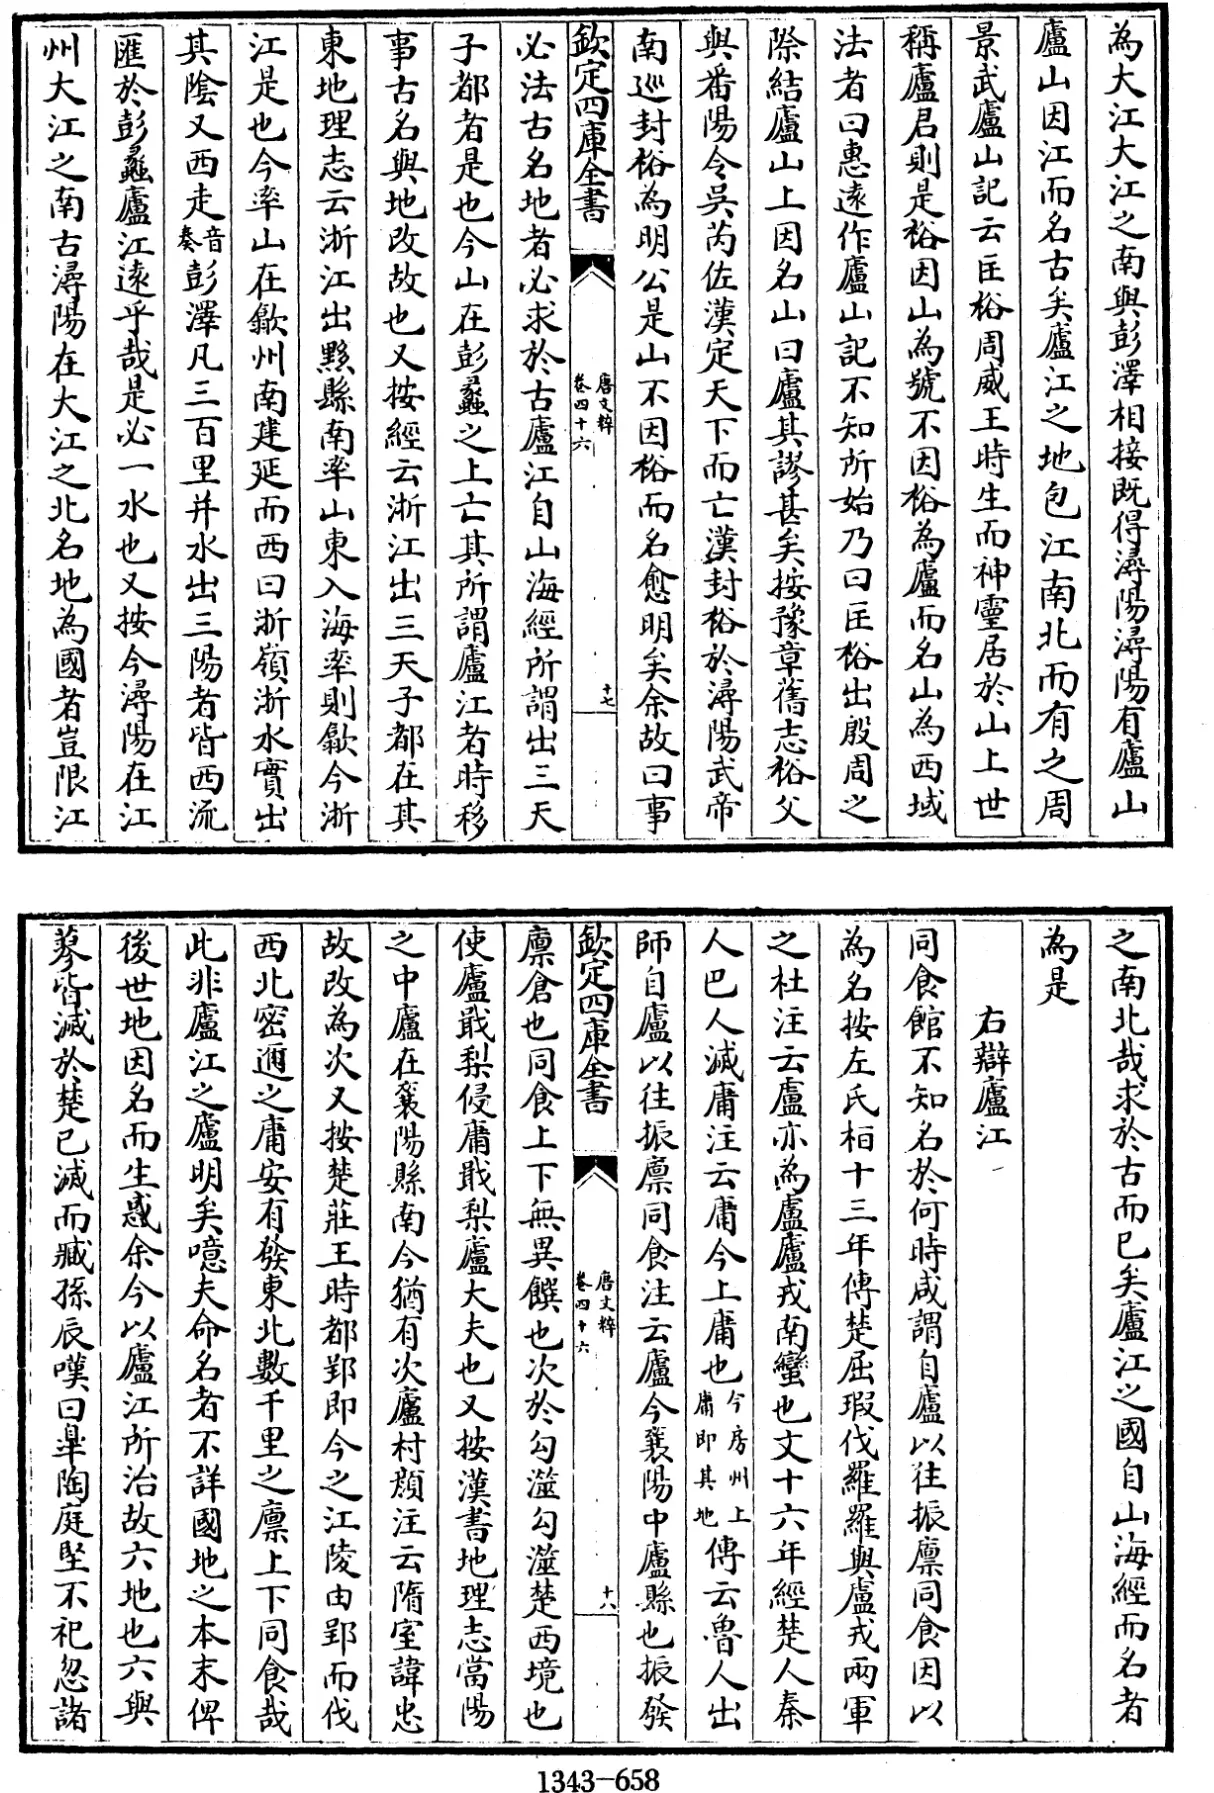 為大江大江之南與彭澤相接既得潯陽潯陽有廬山
廬山因江而名古矣廬江之地包江南北而有之周
景武廬山記云匡裕周威王時生而神靈居於山上世
稱廬君則是裕因山為號不因裕為廬而名山為西域
法者曰惠遠作廬山記不知所始乃曰匡裕出殷周之
際結廬山上因名山曰廬其謬甚矣按豫章舊志裕父
與番陽令吳芮佐漢定天下而亡漢封裕於潯陽武帝
南巡封裕為明公是山不因裕而名愈明矣余故曰事
欽定四庫全書
唐文粹
卷四十六
十七
必法古名地者必求於古廬江自山海經所謂出三天
子都者是也今山在彭蠡之上亡其所謂廬江者時移
事古名與地改故也又按經云浙江出三天子都在其
東地理志云浙江出黟縣南率山東入海率則歙今浙
江是也今率山在歙州南建延而西曰浙嶺浙水實出
其陰又西走音奏彭澤凡三百里并水出三陽者皆西流
匯於彭蠡廬江遠乎哉是必一水也又按今潯陽在江
州大江之南古潯陽在大江之北名地為國者豈限江
之南北哉求於古而已矣廬江之國自山海經而名者
為是
右辯廬江
同食館不知名於何時咸謂自廬以往振廪同食因以
為名按左氏桓十三年傳楚屈瑕伐羅羅與盧戎兩軍
之杜注云盧亦為廬廬戎南蠻也文十六年經楚人秦
人巴人滅庸注云庸今上庸也今房州上庸即其地傳云魯人出
師自廬以往振廪同食注云廬今襄陽中廬縣也振發
欽定四庫全書
唐文粹
卷四十六
十八
廪倉也同食上下無異饌也次於勾澨勾澨楚西境也
使廬戢梨侵庸戢梨廬大夫也又按漢書地理志當陽
之中廬在襄陽縣南今猶有次廬村顏注云隋室諱忠
故改為次又按楚莊王時都郢即今之江陵由郢而伐
西北密邇之庸安有發東北數千里之廪上下同食哉
此非廬江之廬明矣噫夫命名者不詳國地之本末俾
後世地因名而生惑余今以廬江所治故六地也六與
蓼皆滅於楚已滅而臧孫辰嘆曰臯陶庭堅不祀忽諸
1343-658